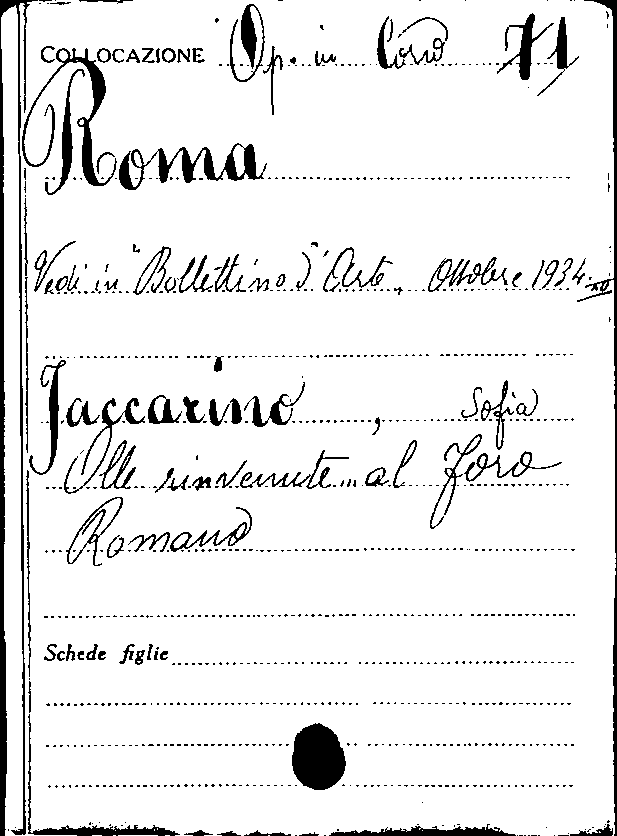 COLLOCAZIONE Op. in Corso 71
Roma
Vedi in "Bollettino d'Arte„ Ottobre 1934-XII
Jaccarino, Sofia
Olle rinvenute... al Foro
Romano
Schede figlie